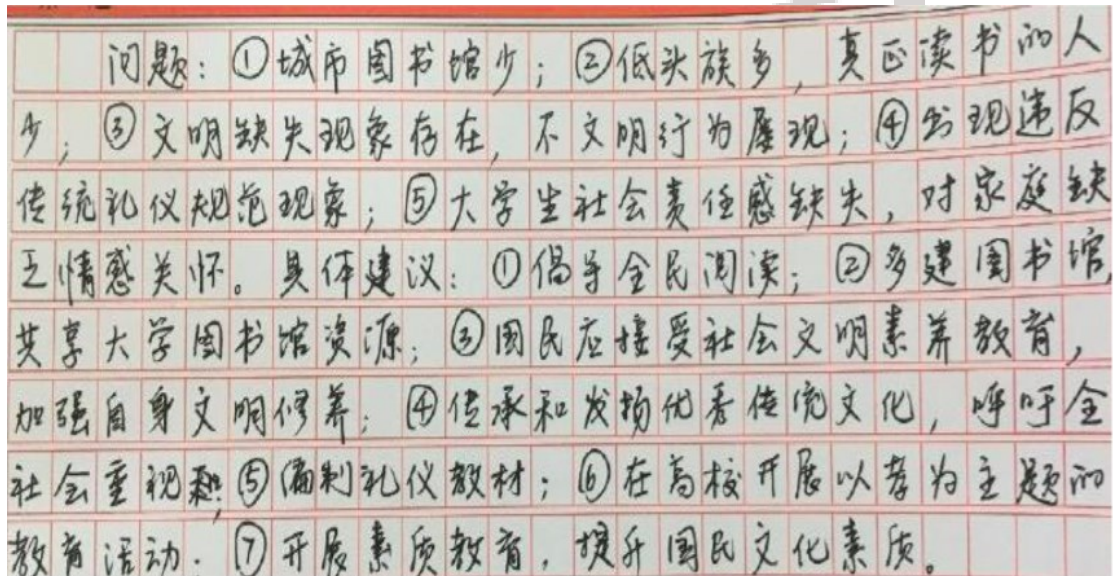 问题：①城市图书馆少；②低头族多，真正读书的人
少；③文明缺失现象存在，不文明行为屡现；④出现违反
传统礼仪规范现象；⑤大学生社会责任感缺失，对家庭缺
乏情感关怀。具体建议：①倡导全民阅读；②多建图书馆，
共享大学图书馆资源；③国民应接受社会文明素养教育，
加强自身文明修养；④传承和发扬优秀传统文化，呼吁全
社会重视；⑤编制礼仪教材；⑥在高校开展以孝为主题的
教育活动；⑦开展素质教育，提升国民文化素质。